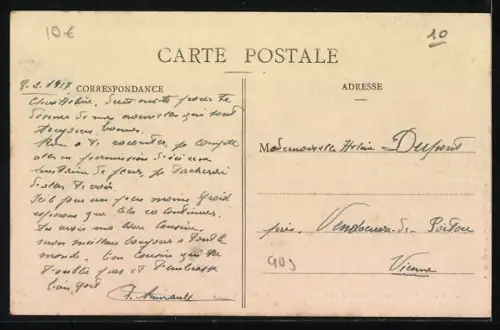 10€
10
CARTE POSTALE
CORRESPONDANCE
ADRESSE
9.2.1917
Chère Hélène, deux mots pour te
donner de me nouvelles qui sont
toujours bonnes.
Rien à te raconter, je compte
aller en permission d'ici une
de jours, je tacherai
d'aller te voir.
Il fait un peu moins froid
espérons que cela va continuer.
Tu ma chère Cousine,
mon meilleur bonjour à tout le
monde. Ton Cousin qui ne
t'oublie pas et t'embrasse
bien fort
Mademoiselle Hélène Dupont
près Vendeuvre-du-Poitou
Vienne